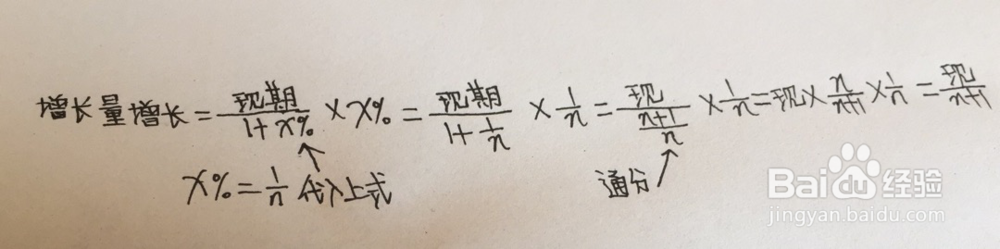 增长量增长 = 现期/(1+x%) × x% = 现期/(1+1/n) × 1/n = 现/((n+1)/n) × 1/n = 现 × n/(n+1) × 1/n = 现/(n+1)
x% = 1/n 代入上式 通分
Baidu经验
jingyan.baidu.com